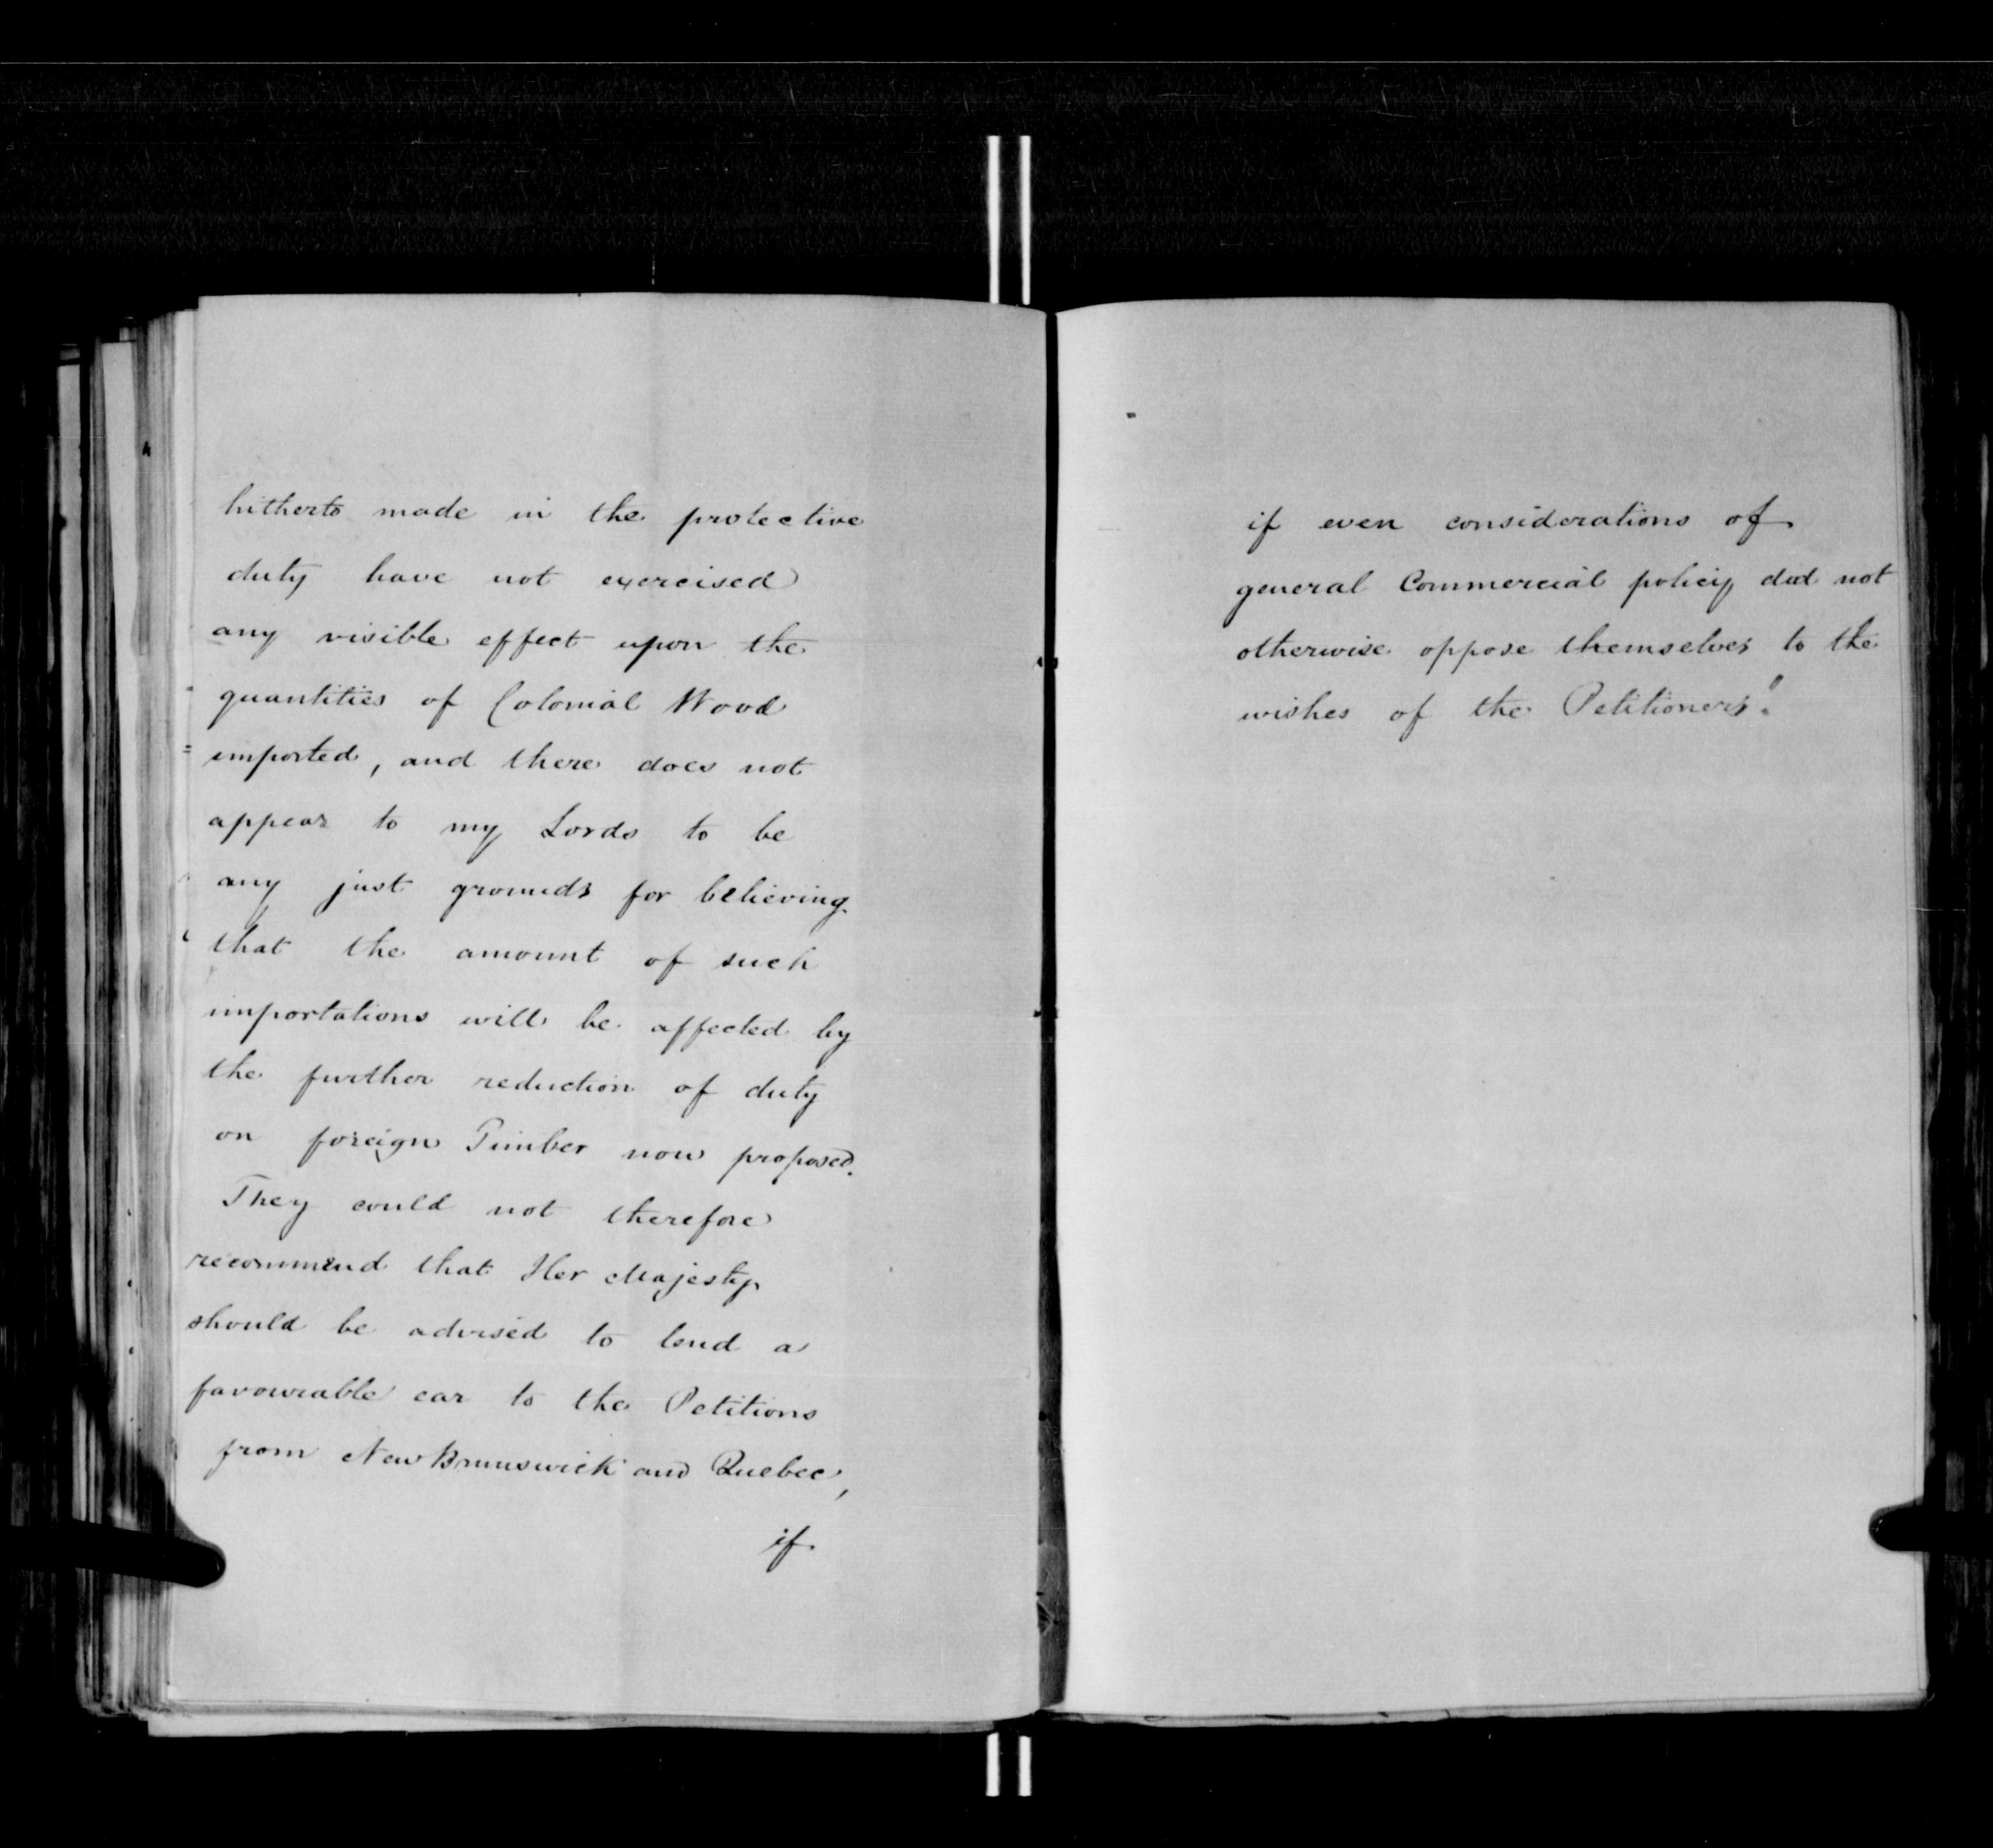 hitherto made in the protective
duty have not exercised
any visible effect upon the
quantities of Colonial Wood
imported, and there does not
appear to my Lords to be
any just grounds for believing
that the amount of such
importations will be affected by
the further reduction of duty
on foreign Timber now proposed.
They could not therefore
recommend that Her Majesty
should be advised to lend a
favourable ear to the Petitions
from New Brunswick and Quebec,
if
if even considerations of
general Commercial policy did not
otherwise oppose themselves to the
wishes of the Petitioners."